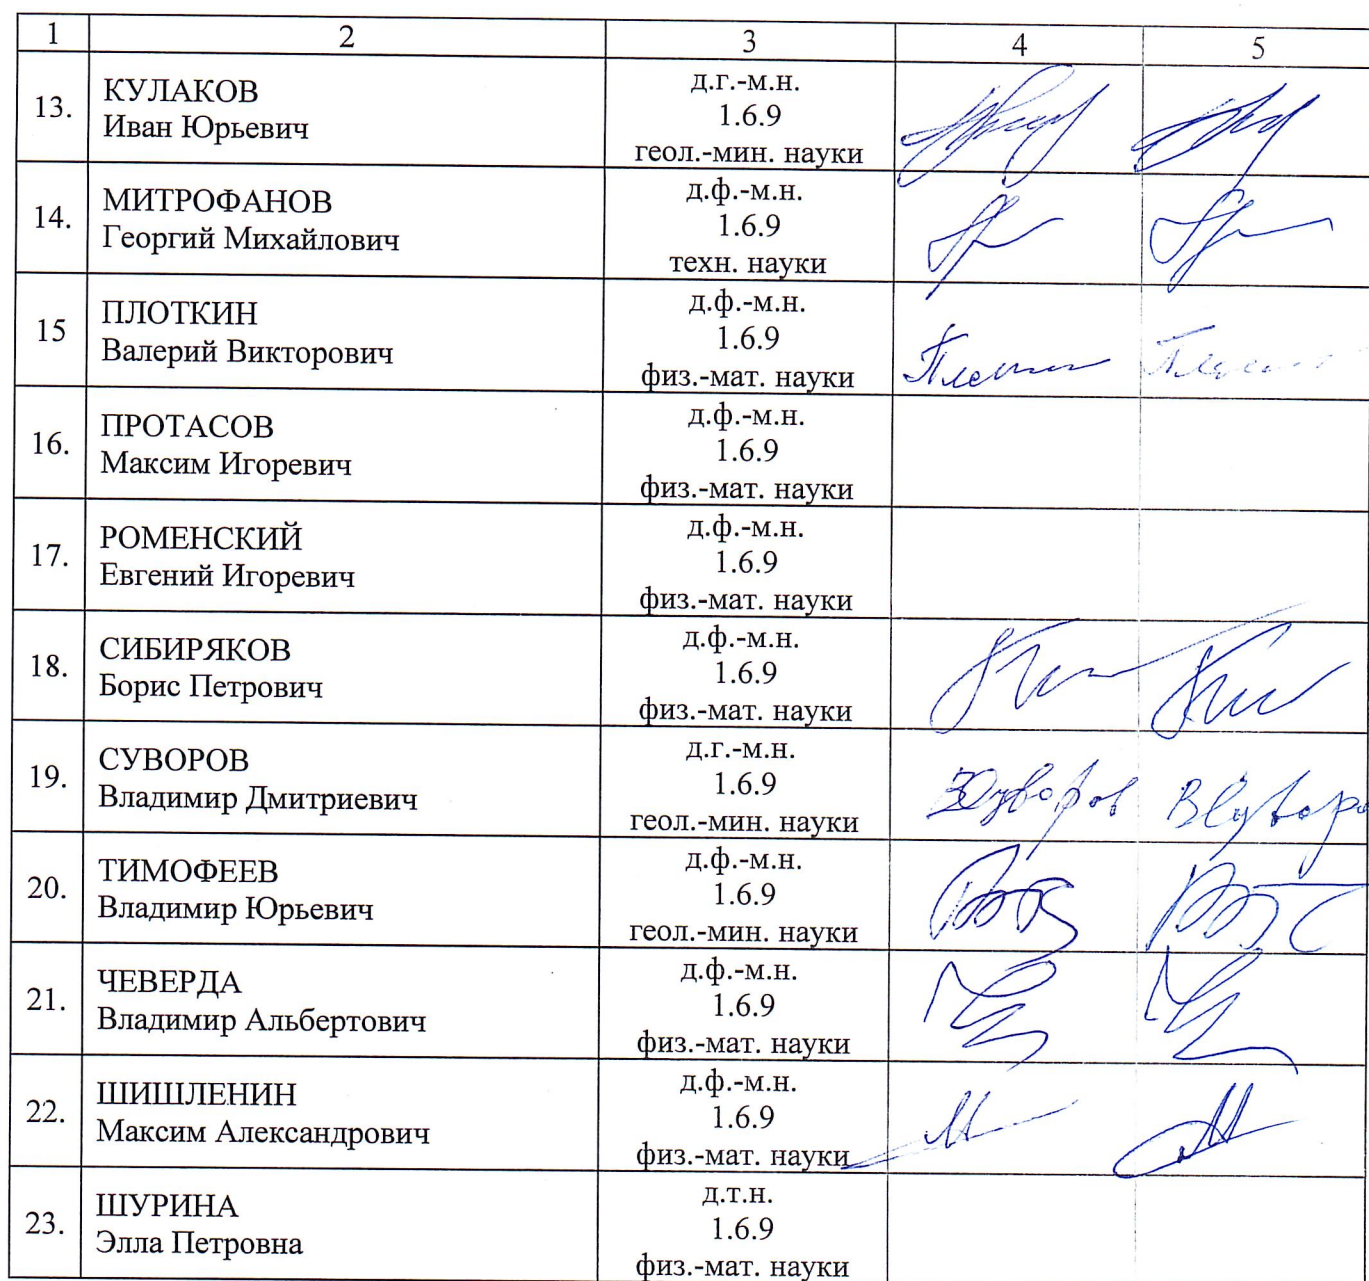 1 2 3 4 5
13. КУЛАКОВ
Иван Юрьевич
д.г.-м.н.
1.6.9
геол.-мин. науки
14. МИТРОФАНОВ
Георгий Михайлович
д.ф.-м.н.
1.6.9
техн. науки
15 ПЛОТКИН
Валерий Викторович
д.ф.-м.н.
1.6.9
физ.-мат. науки
16. ПРОТАСОВ
Максим Игоревич
д.ф.-м.н.
1.6.9
физ.-мат. науки
17. РОМЕНСКИЙ
Евгений Игоревич
д.ф.-м.н.
1.6.9
физ.-мат. науки
18. СИБИРЯКОВ
Борис Петрович
д.ф.-м.н.
1.6.9
физ.-мат. науки
19. СУВОРОВ
Владимир Дмитриевич
д.г.-м.н.
1.6.9
геол.-мин. науки
20. ТИМОФЕЕВ
Владимир Юрьевич
д.ф.-м.н.
1.6.9
геол.-мин. науки
21. ЧЕВЕРДА
Владимир Альбертович
д.ф.-м.н.
1.6.9
физ.-мат. науки
22. ШИШЛЕНИН
Максим Александрович
д.ф.-м.н.
1.6.9
физ.-мат. науки
23. ШУРИНА
Элла Петровна
д.т.н.
1.6.9
физ.-мат. науки